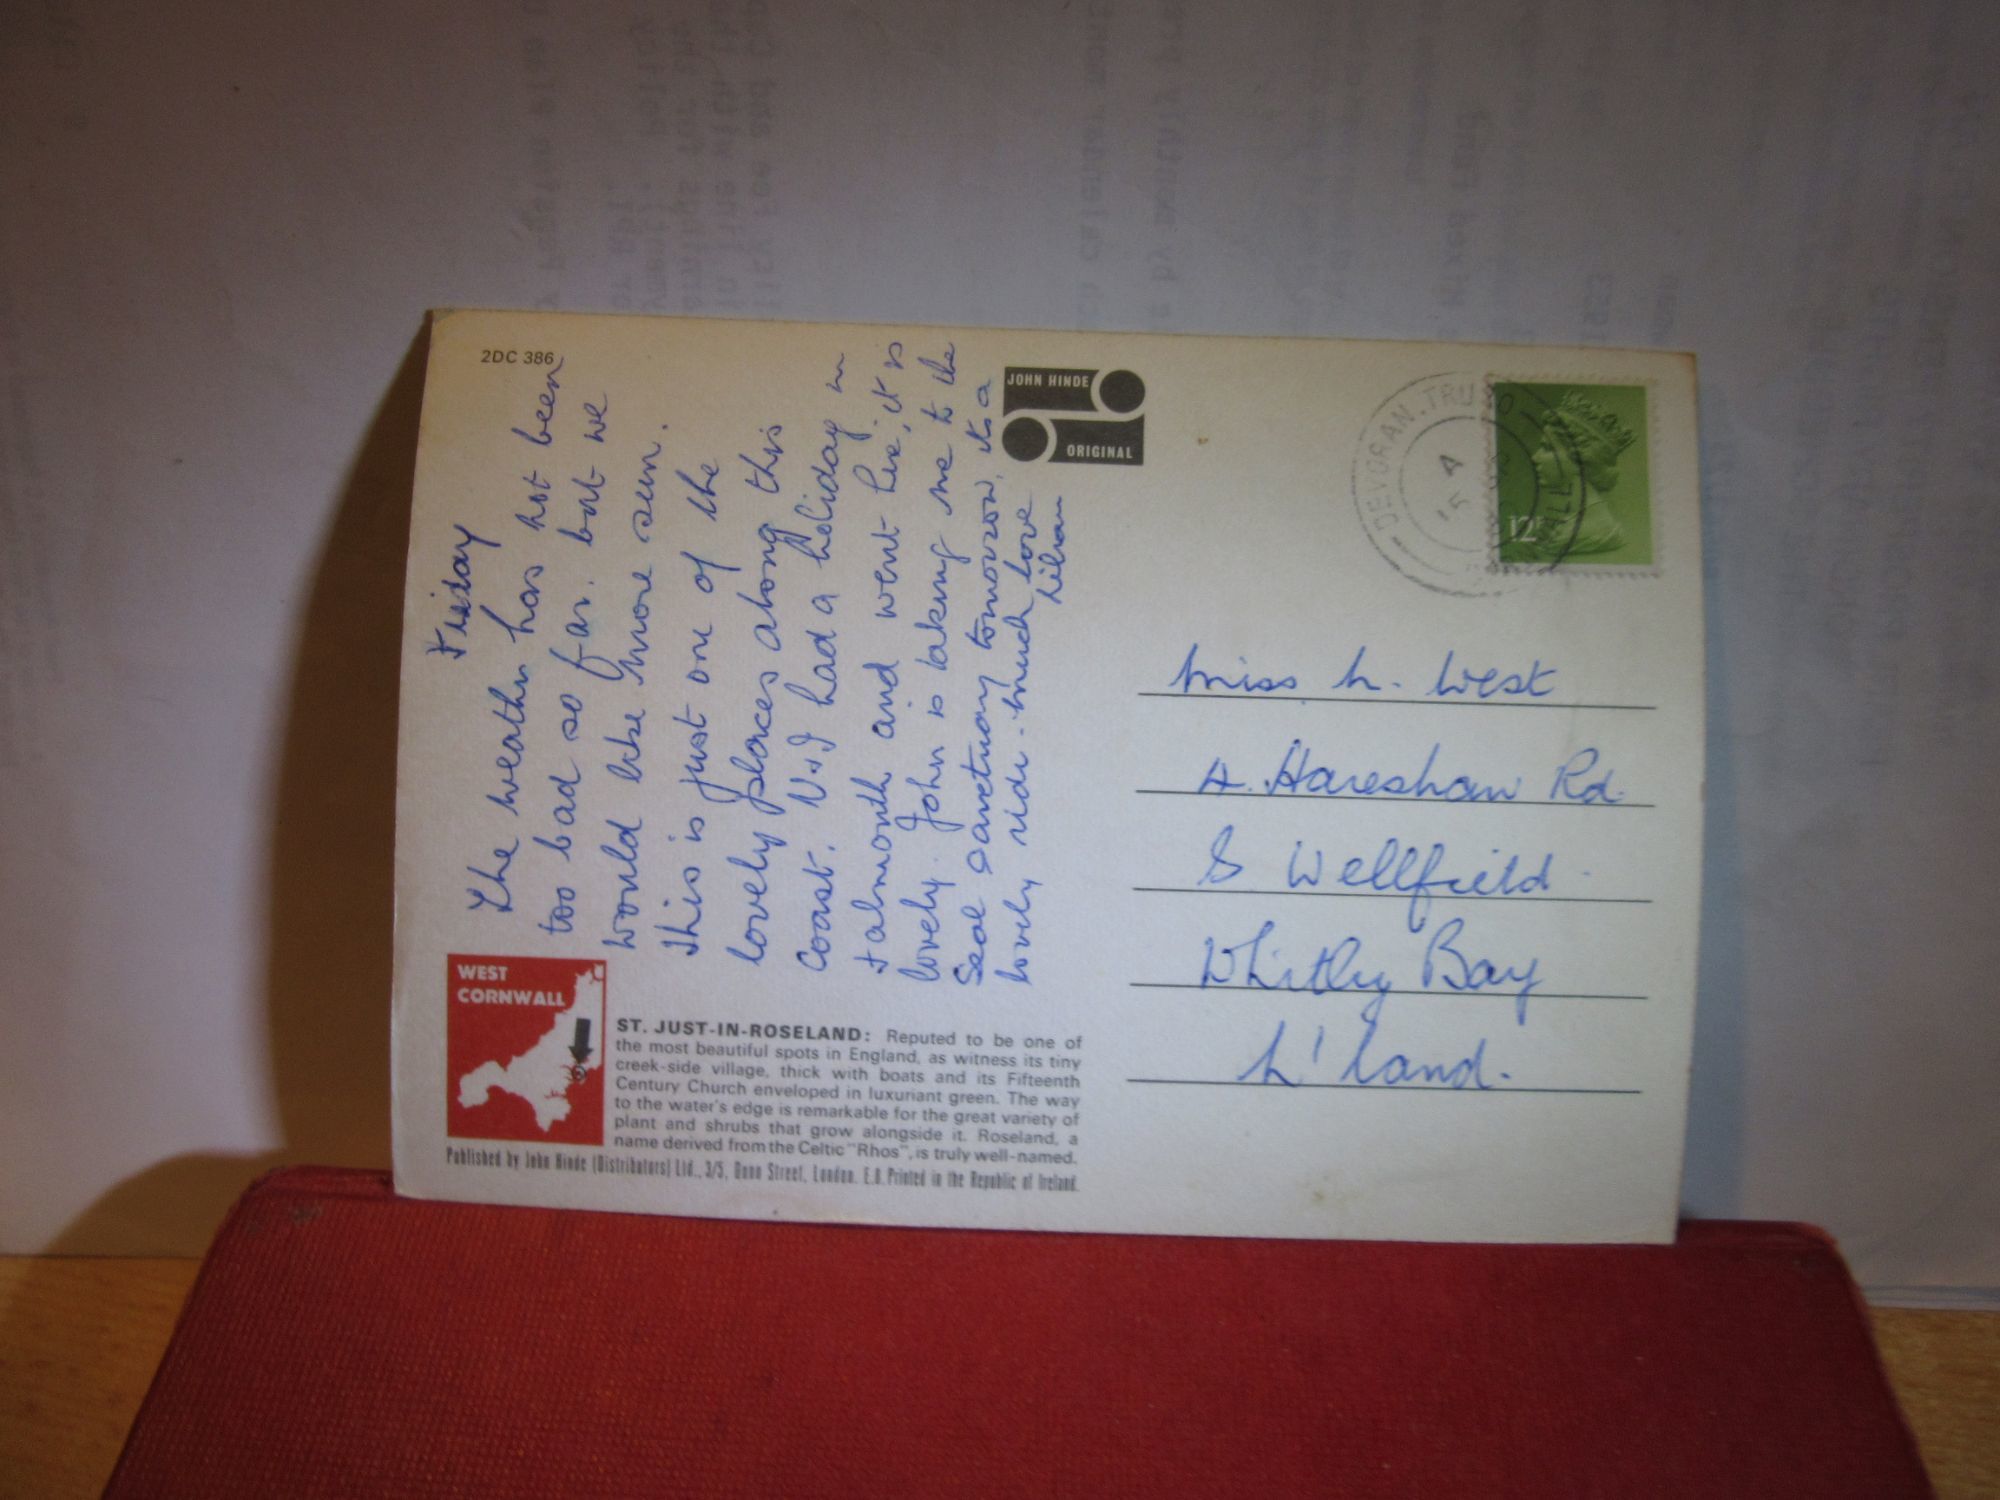 2DC 386
Friday
The weather has not been
too bad so far. but we
would like more sun.
This is just one of the
lovely places along this
coast. N+I had a holiday in
Falmouth and went here, it is
lovely. John is taking me to the
Seal Sanctuary tomorrow, its a
lovely ride. Much love
Lilian
JOHN HINDE
ORIGINAL
DEVORAN. TRURO
12P
Miss L. West
4. Hareshaw Rd.
S Wellfield.
Whitley Bay
N'land.
WEST
CORNWALL
ST. JUST-IN-ROSELAND: Reputed to be one of
the most beautiful spots in England, as witness its tiny
creek-side village, thick with boats and its Fifteenth
Century Church enveloped in luxuriant green. The way
to the water's edge is remarkable for the great variety of
plant and shrubs that grow alongside it. Roseland, a
name derived from the Celtic "Rhos", is truly well-named.
Published by John Hinde (Distributors) Ltd., 3/5, Dunn Street, London. E.8. Printed in the Republic of Ireland.